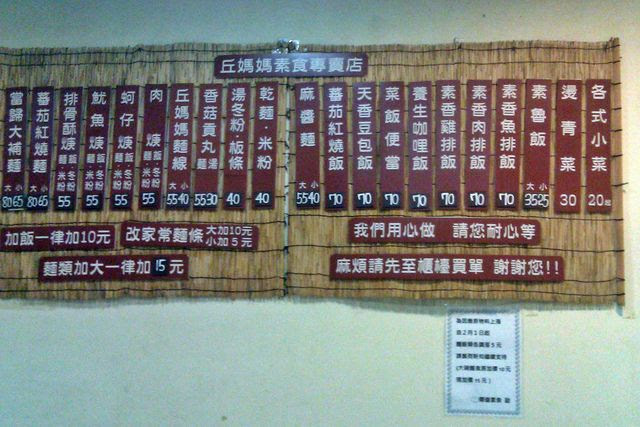 丘媽媽素食專賣店
各式小菜 20起
燙青菜 30
素魯飯 大小 35 25
素香魚排飯 70
素香肉排飯 70
素香雞排飯 70
養生咖哩飯 70
菜飯便當 70
天香豆包飯 70
蕃茄紅燒飯 70
麻醬麵 大小 55 40
乾麵・米粉 40
湯冬粉・板條 40
香菇貢丸湯 大小 55 30
丘媽媽麵線 大小 55 40
肉焿 麵 冬粉 米粉 55
蚵仔焿 麵 冬粉 米粉 55
魷魚焿 麵 冬粉 米粉 55
排骨酥焿 麵 冬粉 米粉 55
蕃茄紅燒麵 大小 80 65
當歸大補麵 大小 80 65
加飯一律加10元
改家常麵條 大加10元 小加5元
我們用心做 請您耐心等
麵類加大一律加15元
麻煩請先至櫃檯買單 謝謝您!!
為因應原物料上漲
自2月1日起